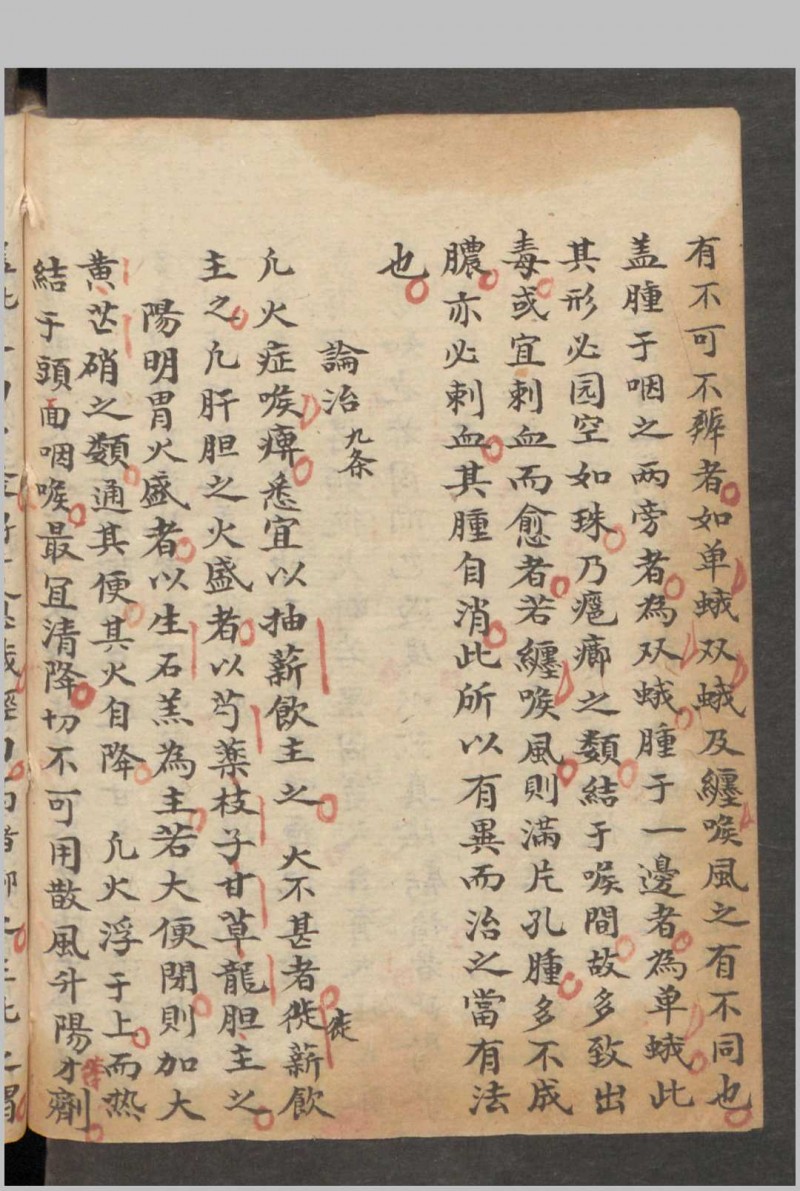 有不可不辨者如单蛾双蛾及纏喉風之有不同也
盖腫于咽之两旁者為双蛾腫于一邊者為单蛾此
其形必园空如珠乃瘪癤之類結于喉間故多致出
毒或宜刺血而愈者若纏喉風則滿片孔腫多不成
膿亦必刺血其腫自消此所以有異而治之當有法
也
論治九条
凢火症喉痺悉宜以抽薪飲主之 火不甚者徙薪飲
徙
主之凢肝胆之火盛者以芍薬枝子甘草龍胆主之
陽明胃火盛者以生石羔為主若大便閉則加大
黄芒硝之類通其便其火自降 凢火浮于上而热
結于頭面咽喉最宜清降切不可用散風升陽
等劑